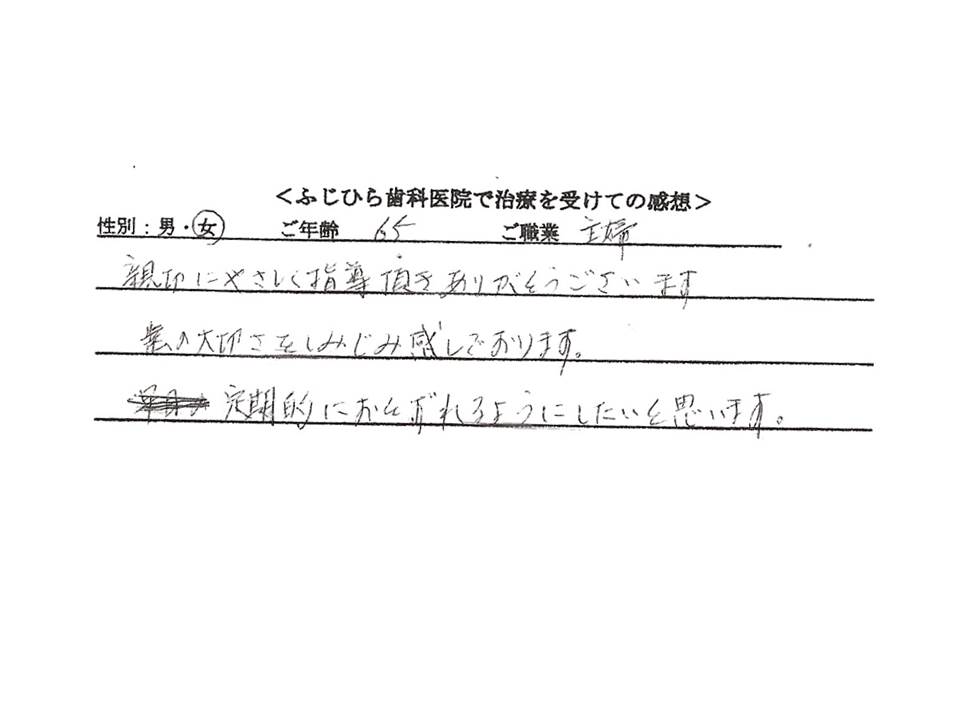 ＜ふじひら歯科医院で治療を受けての感想＞
性別：男・女 ご年齢 65 ご職業 主婦
親切にやさしく指導頂きありがとうございます
の大切さをしみじみ感じております。
定期的におとずれるようにしたいと思います。